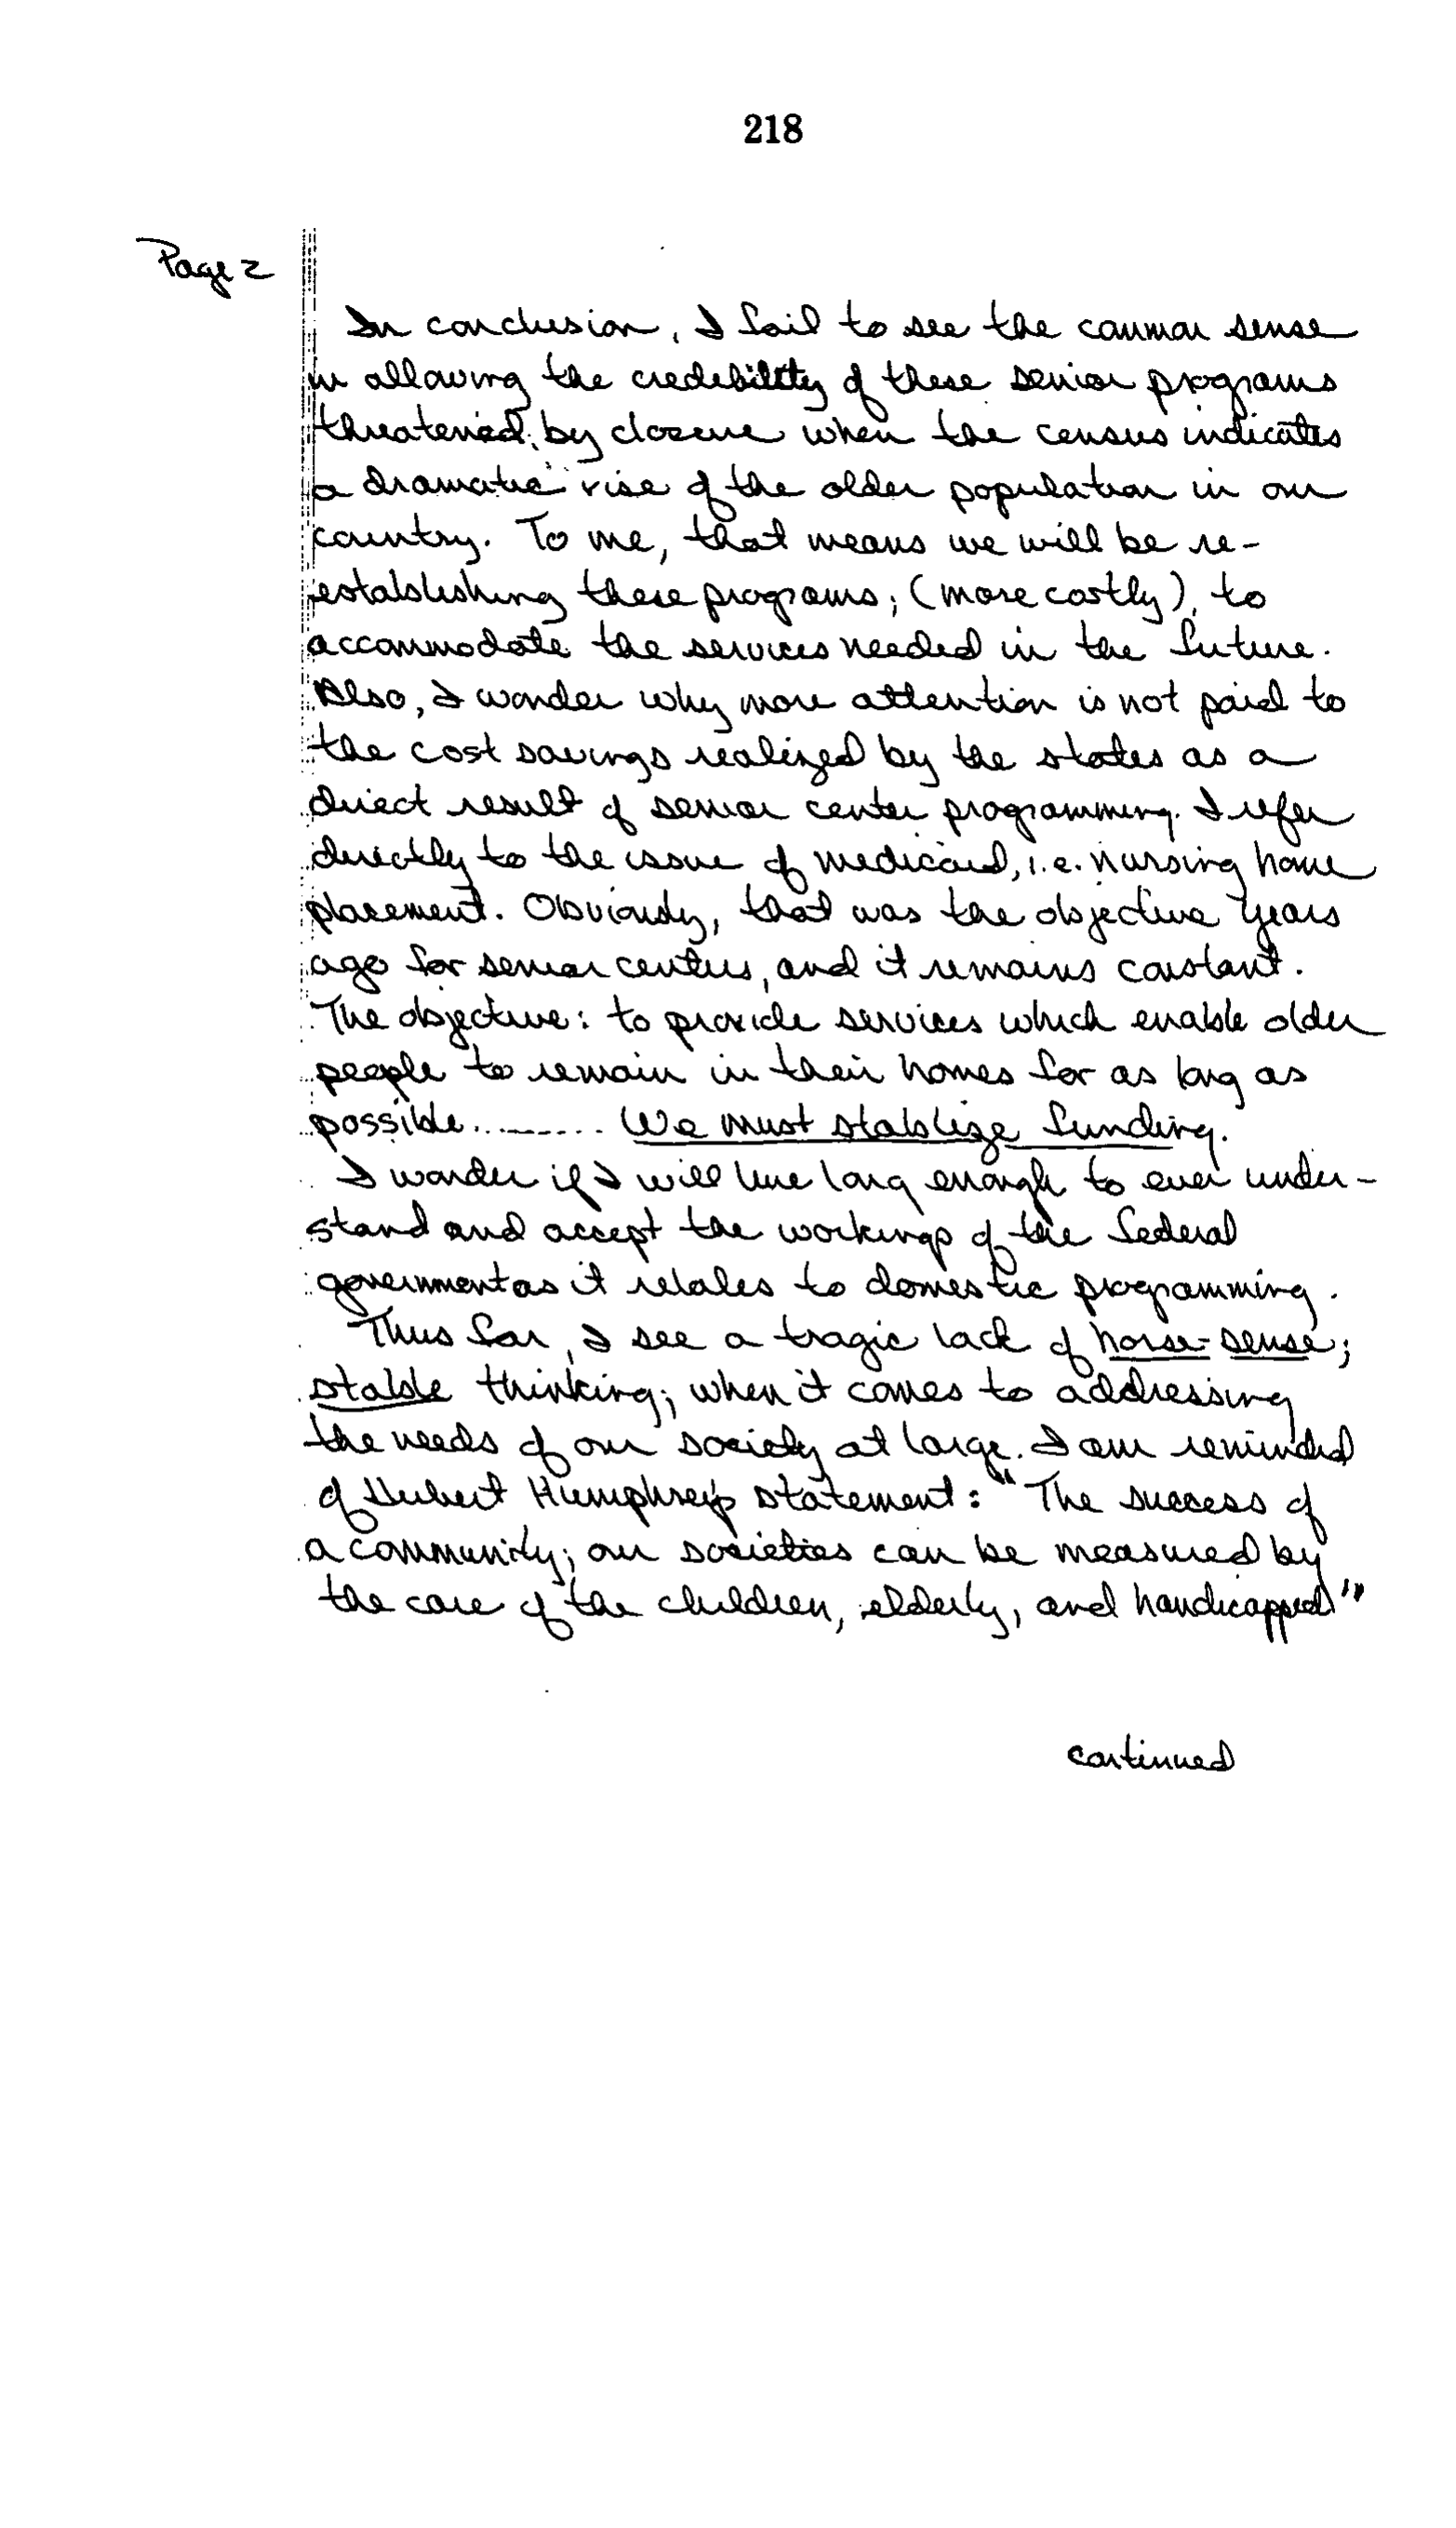 218
Page 2
In conclusion, I fail to see the common sense
in allowing the credebility of these senior programs
threatened, by closure when the census indicates
a dramatic rise of the older population in our
country. To me, that means we will be re-
establishing these programs; (more costly), to
accommodate the services needed in the future.
Also, I wonder why more attention is not paid to
the cost savings realized by the states as a
direct result of senior center programming. I refer
directly to the issue of medicaid, i.e. nursing home
placement. Obviously, that was the objective years
ago for senior centers, and it remains constant.
The objective: to provide services which enable older
people to remain in their homes for as long as
possible.......... We must stablize funding.
I wonder if I will live long enough to ever under-
stand and accept the workings of the federal
government as it relates to domestic programming.
Thus far, I see a tragic lack of horse-sense;
stable thinking; when it comes to addressing
the needs of our society at large. I am reminded
of Hubert Humphrey's statement: "The success of
a community; our societies can be measured by
the care of the children, elderly, and handicapped"
continued